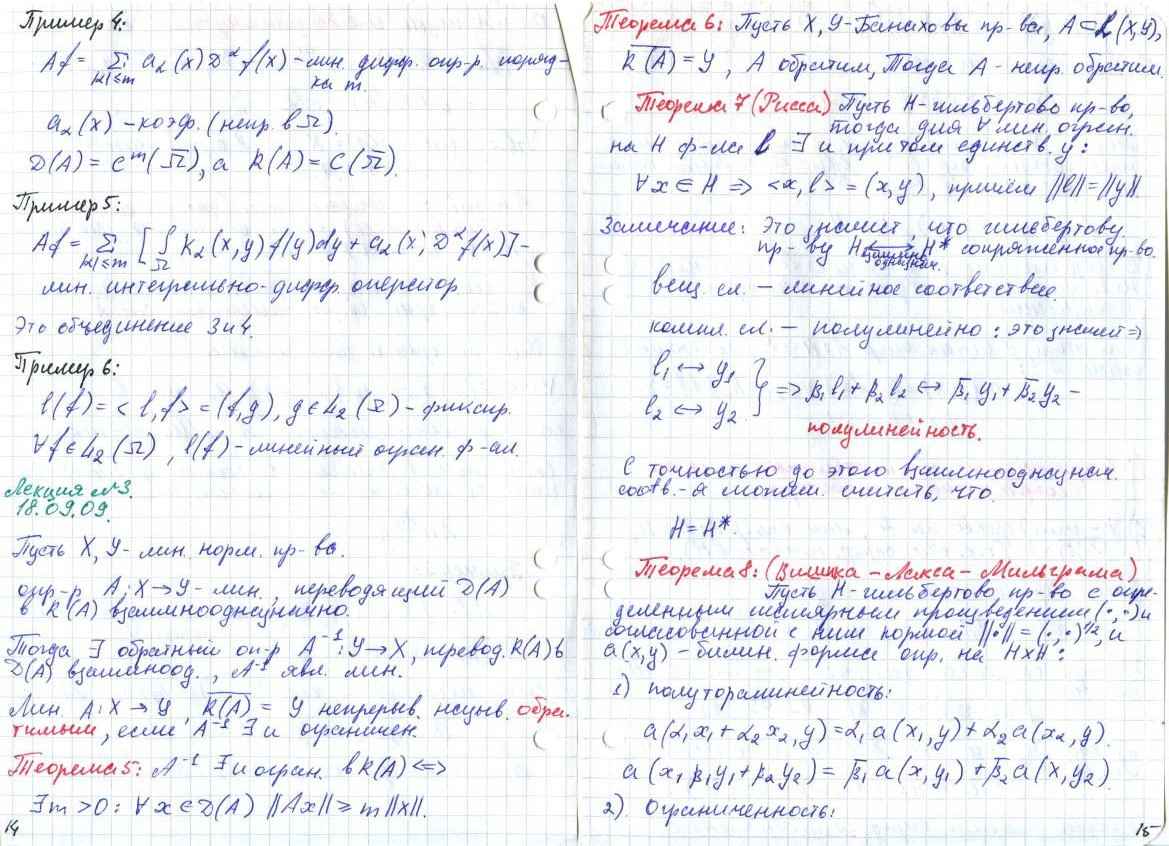 Пример 4:
Af = ∑ a_α(x) D^α f(x) – лин. дифф. опр-р. поряд-
|α|≤m ка m.
a_α(x) – коэф. (непр. в Ω̅).
D(A) = C^m(Ω̅), а R(A) = C(Ω̅).
Пример 5:
Af = ∑ [∫ K_α(x,y) f(y)dy + a_α(x; D^α f(x)] –
|α|≤m Ω
лин. интегрально-дифф. оператор
Это объединение 3 и 4.
Пример 6:
l(f) = <l,f> = (f,g), g∈L₂(Ω) – фиксир.
∀f∈L₂(Ω), l(f) – линейный огран. ф-ал.
Лекция №3.
18.09.09.
Пусть X, Y – лин. норм. пр-ва.
опр-р A: X→Y – лин., переводящий D(A)
в R(A) взаимнооднозначно.
Тогда ∃ обратный оп-р A⁻¹: Y→X, перевод. R(A) в
D(A) взаимноод., A⁻¹ явл. лин.
Лин. A: X→Y, R̅(̅A̅)̅ = Y непрерыв. назыв. обра-
тимым, если A⁻¹ ∃ и ограничен.
Теорема 5: A⁻¹ ∃ и огран. в R(A) <=>
∃m>0: ∀x∈D(A) ||Ax|| ≥ m||x||.
14
Теорема 6: Пусть X, Y – Банаховы пр-ва, A⊂L(X,Y),
R̅(̅A̅)̅ = Y, A обратим, Тогда A – непр. обратим.
Теорема 7 (Рисса) Пусть H – гильбертово пр-во,
тогда для ∀ лин. огран.
на H ф-ла l ∃ и притом единств. y:
∀x∈H => <x,l> = (x,y), причём ||l|| = ||y||.
Замечание: Это значит, что гильбертову
пр-ву H <=> H* сопряженное пр-во.
взаимно
однознач.
вещ. сл. – линейное соответствие.
компл. сл. – полулинейно: это значит =>
l₁ ↔ y₁
} => β₁l₁ + β₂l₂ ↔ β̅₁y₁ + β̅₂y₂ –
l₂ ↔ y₂
полулинейность.
С точностью до этого взаимнооднознач.
соотв.-я можем. считать, что
H = H*.
Теорема 8: (Вишика – Лакса – Мильграма)
Пусть H – гильбертово пр-во с опре-
деленным скалярным произведением (·,·) и
согласованной с ним нормой ||·|| = (·,·)^1/2, и
a(x,y) – билин. форма опр. на H×H:
1) полуторалинейность:
a(α₁x₁ + α₂x₂, y) = α₁a(x₁,y) + α₂a(x₂,y).
a(x, β₁y₁ + β₂y₂) = β̅₁a(x,y₁) + β̅₂a(x,y₂).
2) Ограниченность:
15